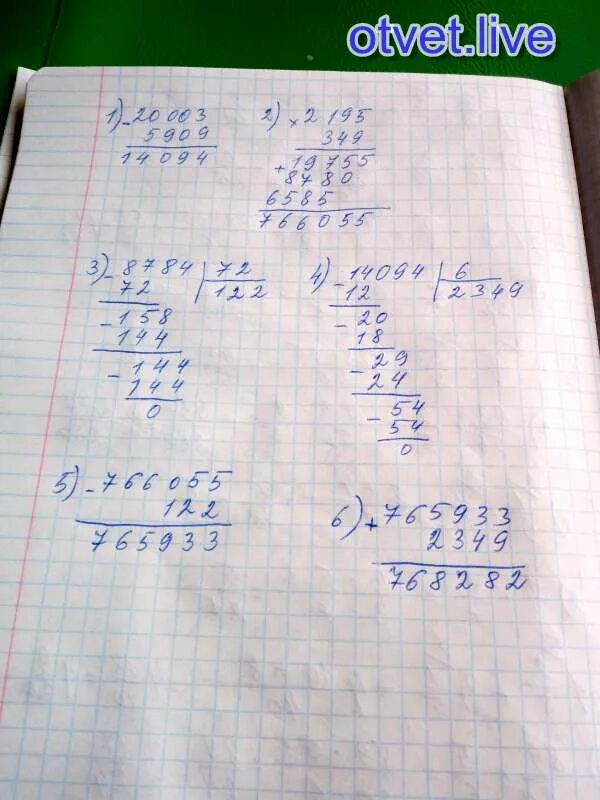 otvet.live
1) - 20003
5909
14094
2) × 2195
349
+ 19755
8780
6585
766055
3) - 8784 | 72
72 122
- 158
144
- 144
144
0
4) - 14094 | 6
12 2349
- 20
18
- 29
24
- 54
54
0
5) - 766055
122
765933
6) + 765933
2349
768282